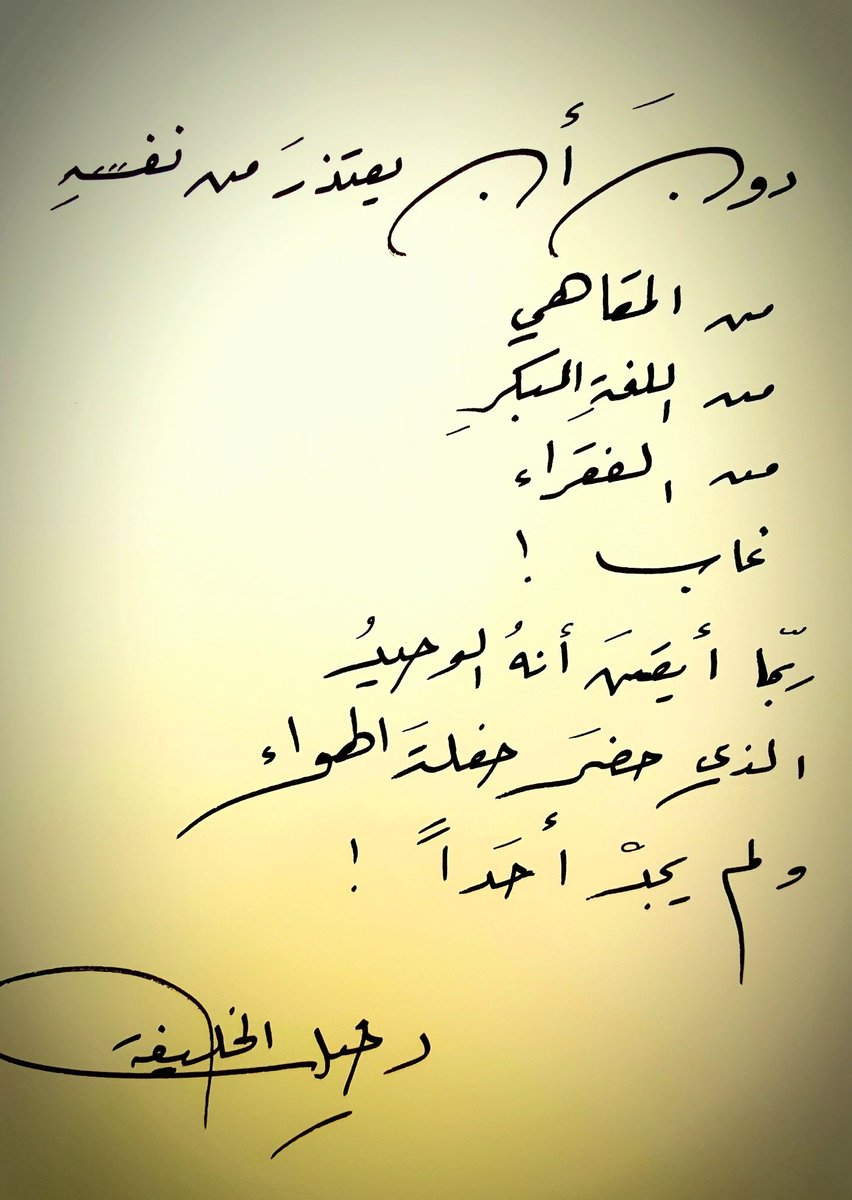 دونَ أن يعتذرَ من نفسهِ
من المقاهي
من اللغةِ المبكرِ
من الفقراء
غاب !
ربّما أيقنَ أنهُ الوحيدُ
الذي حضرَ حفلةَ الهواء
ولم يجدْ أحَداً !
دخيل الخليفة